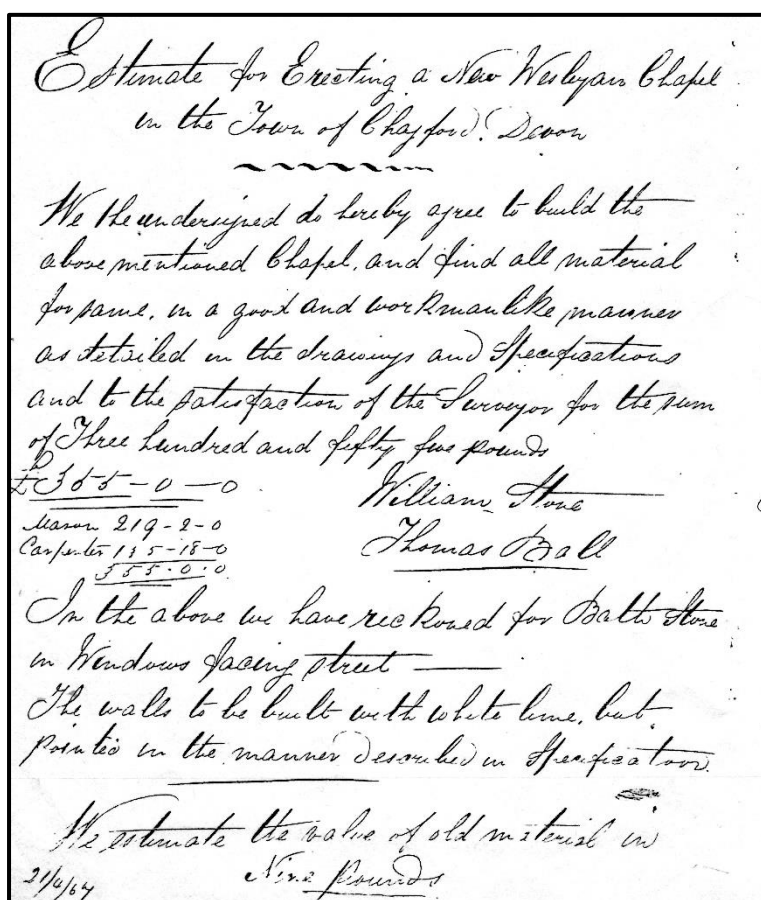 Estimate for Erecting a New Wesleyan Chapel
in the Town of Chagford. Devon
We the undersigned do hereby agree to build the
above mentioned Chapel, and find all material
for same, in a good and workmanlike manner
as detailed in the drawings and Specifications
and to the satisfaction of the Surveyor for the sum
of Three hundred and fifty five pounds
£355-0-0
William Stone
Mason 219-2-0
Thomas Ball
Carpenter 135-18-0
355.0.0
In the above we have reckoned for Bath Stone
in Windows facing street
The walls to be built with white lime, but
pointed in the manner described in Specification.
We estimate the value of old material in
Nine pounds